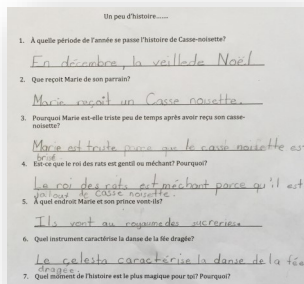 Un peu d'histoire.......
1. À quelle période de l'année se passe l'histoire de Casse-noisette?
En décembre, la veille de Noël
2. Que reçoit Marie de son parrain?
Marie reçoit un Casse nouette.
3. Pourquoi Marie est-elle triste peu de temps après avoir reçu son casse-
noisette?
Marie est truste parce que le casse noisette es
brisé.
4. Est-ce que le roi des rats est gentil ou méchant? Pourquoi?
Le roi des rats est méchant parce qu'il est
jaloux de casse noisette.
5. À quel endroit Marie et son prince vont-ils?
Ils vont au royaume des sucreries.
6. Quel instrument caractérise la danse de la fée dragée?
Le celesta caractérise la danse de la fée
dragée.
7. Quel moment de l'histoire est le plus magique pour toi? Pourquoi?